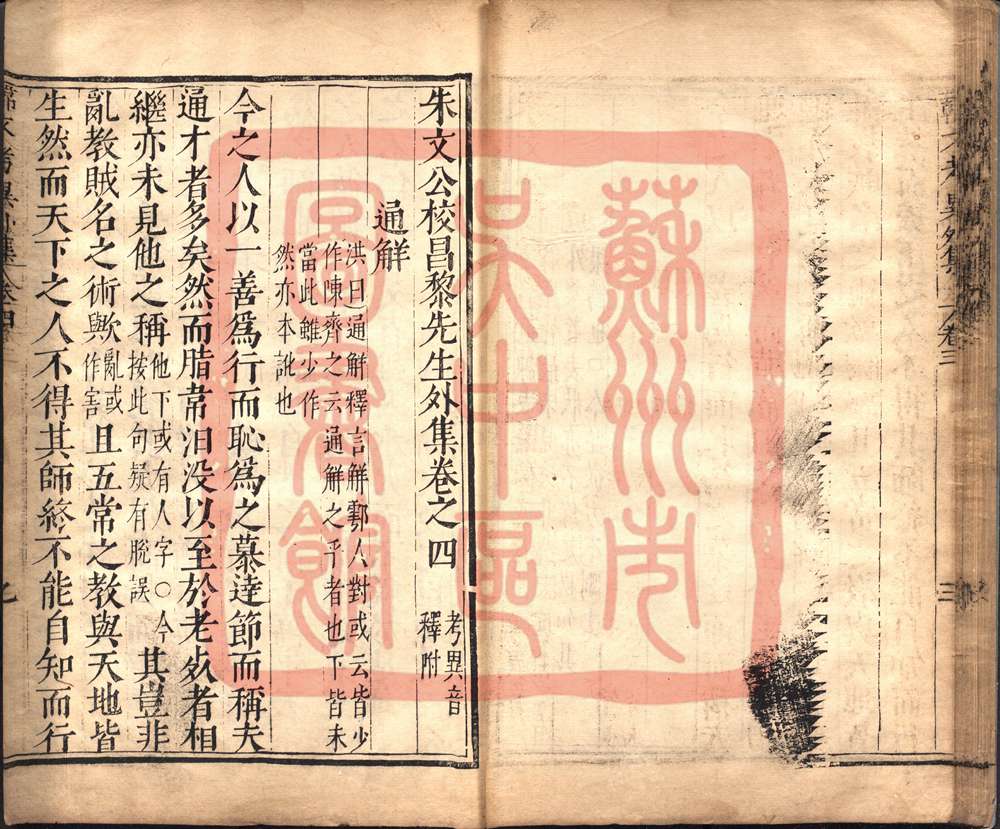 朱文公校昌黎先生外集卷之四
考異音
釋附
通解
洪曰通解釋言解鄠人對或云皆少
作陳齊之云通解之乎者也下皆未
當此雖少作
然亦本訛也
今之人以一善爲行而恥爲之慕達節而稱夫
通才者多矣然而脂韋汩没以至於老死者相
繼亦未見他之稱
他下或有人字○今
按此句疑有脫誤
其豈非
亂教賊名之術歟
亂或
作害
且五常之教與天地皆
生然而天下之人不得其師終不能自知而行
卷三
三
蘇州市
吴中區
圖書館